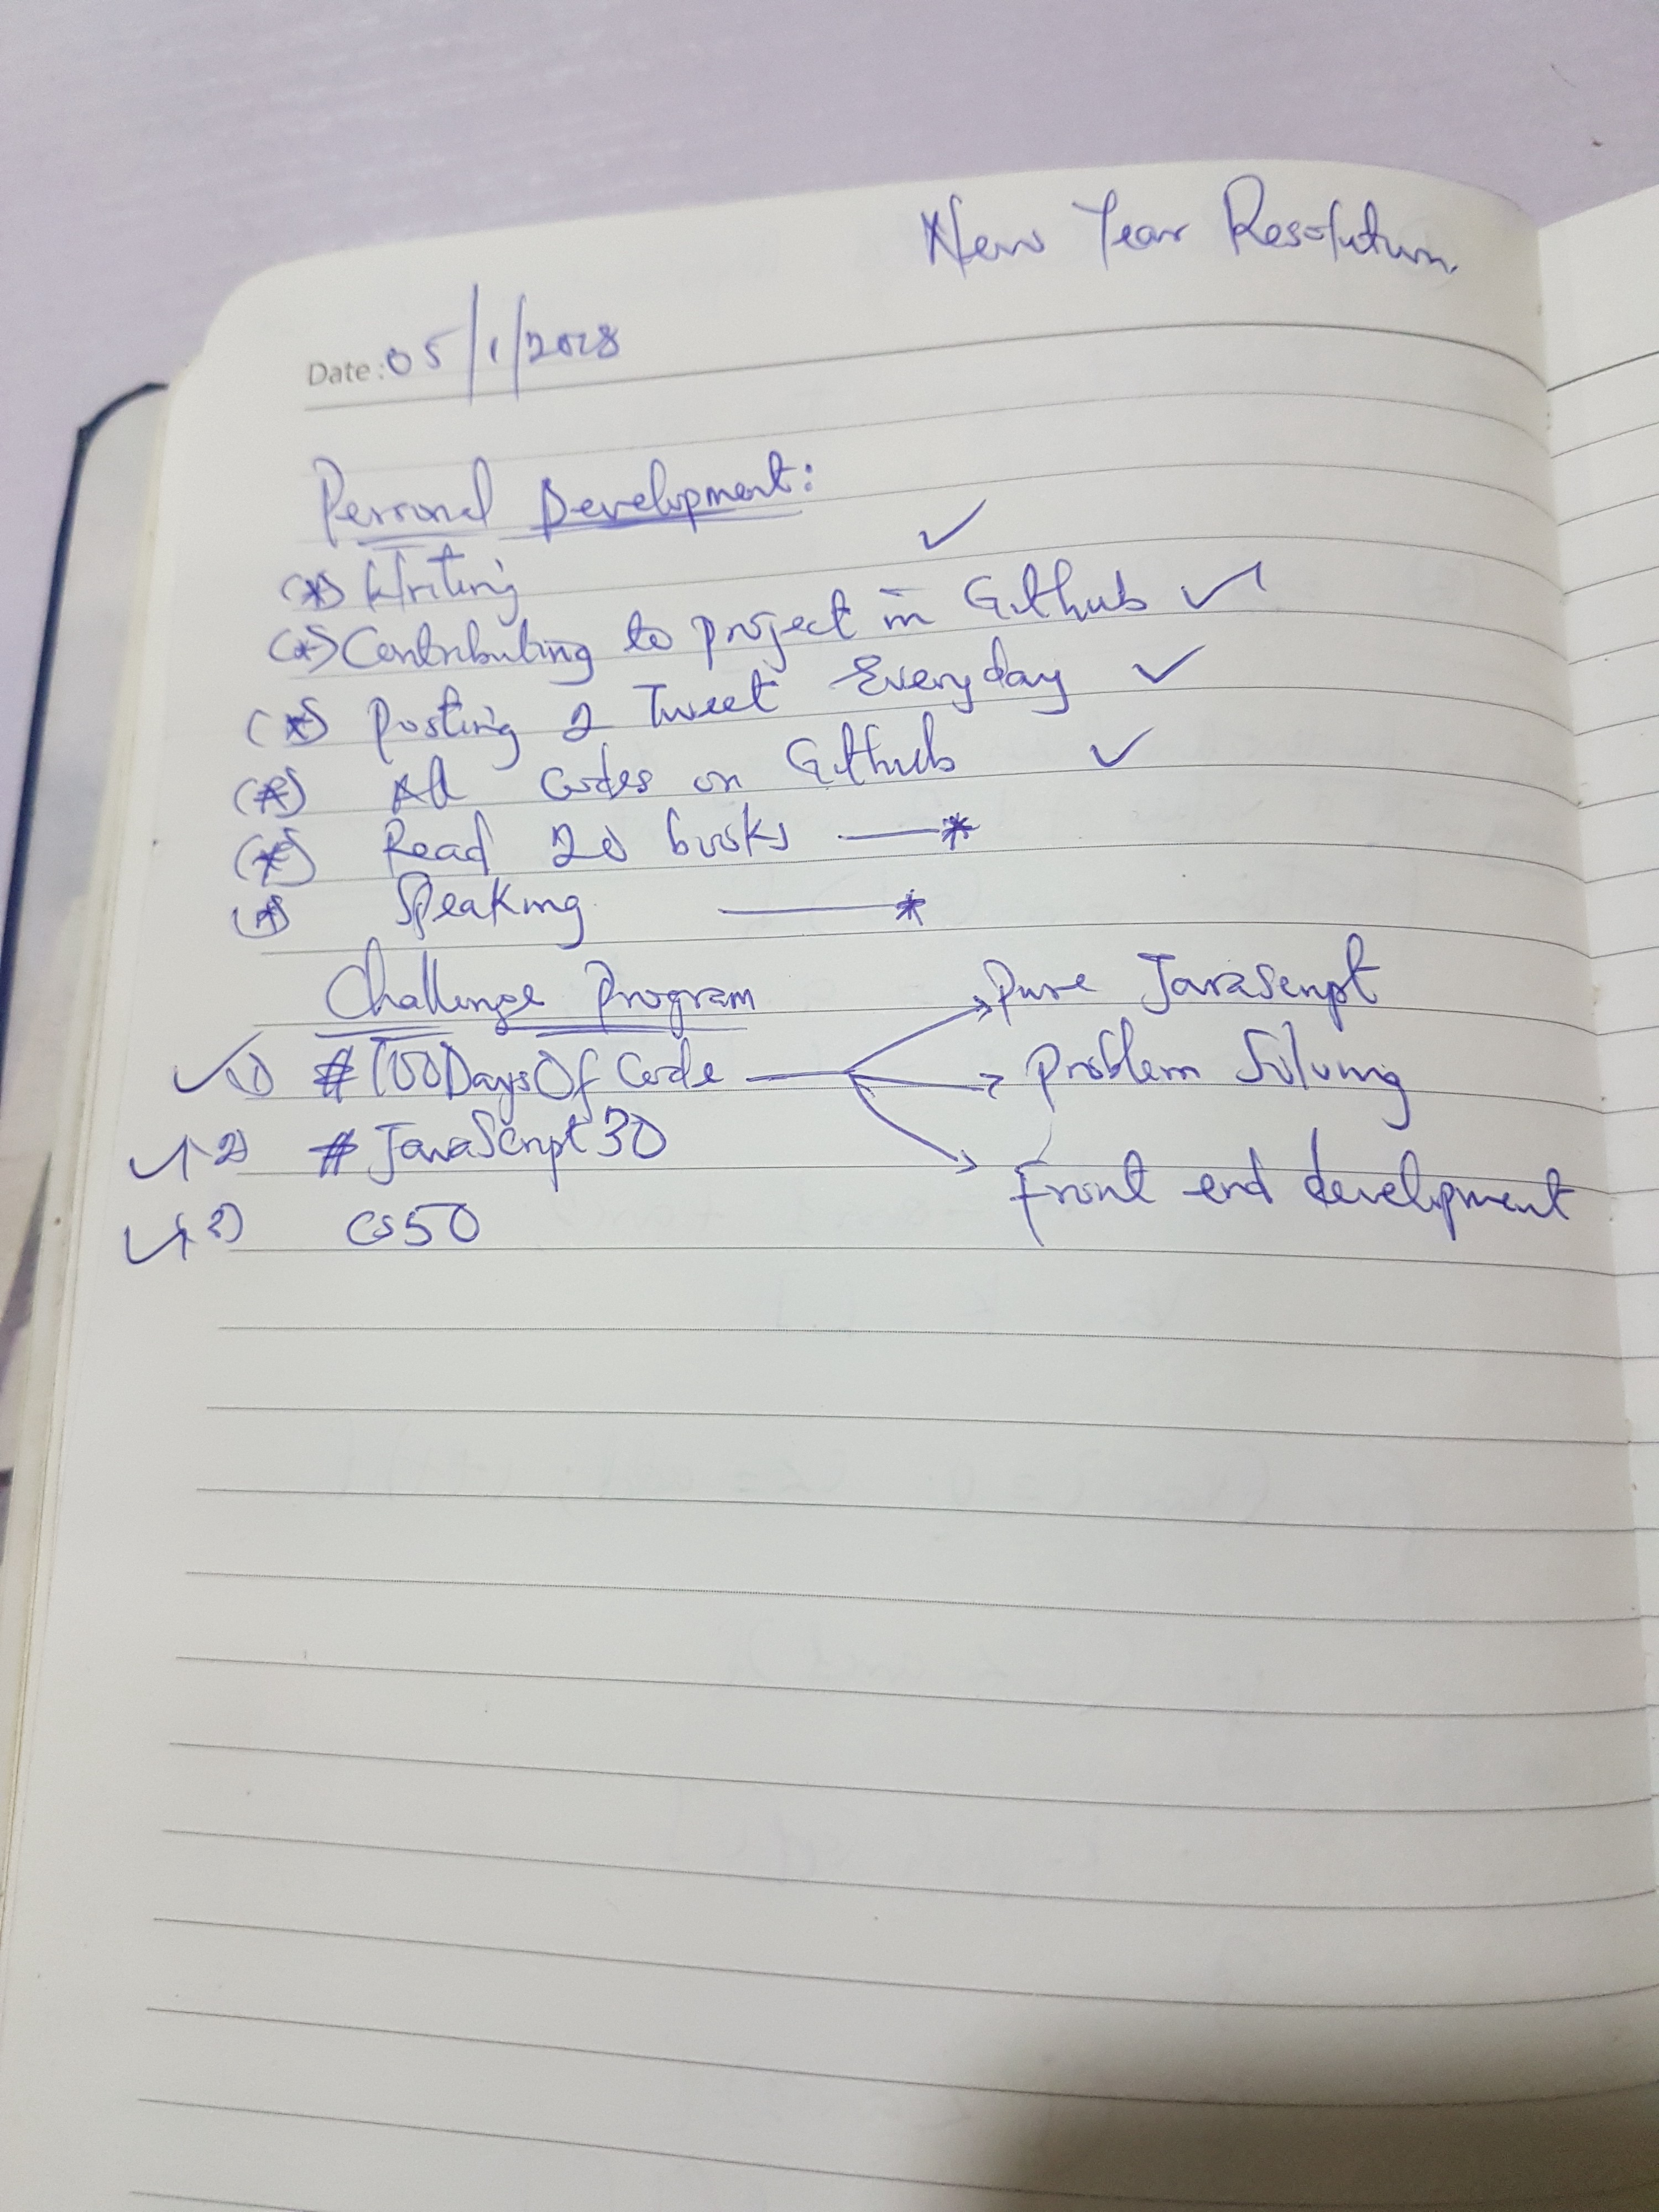 New Year Resolution
Date: 05/1/2018
Personal Development:
(*) Writing ✓
(*) Contributing to project in Github ✓
(*) Posting 2 Tweet Everyday ✓
(*) All codes on Github ✓
(*) Read 20 books —*
(*) Speaking —*
Challenge Program
✓ 1) #100DaysOfCode → Pure JavaScript
→ Problem Solving
✓ 2) #JavaScript30
→ Front end development
✓ 3) CS50